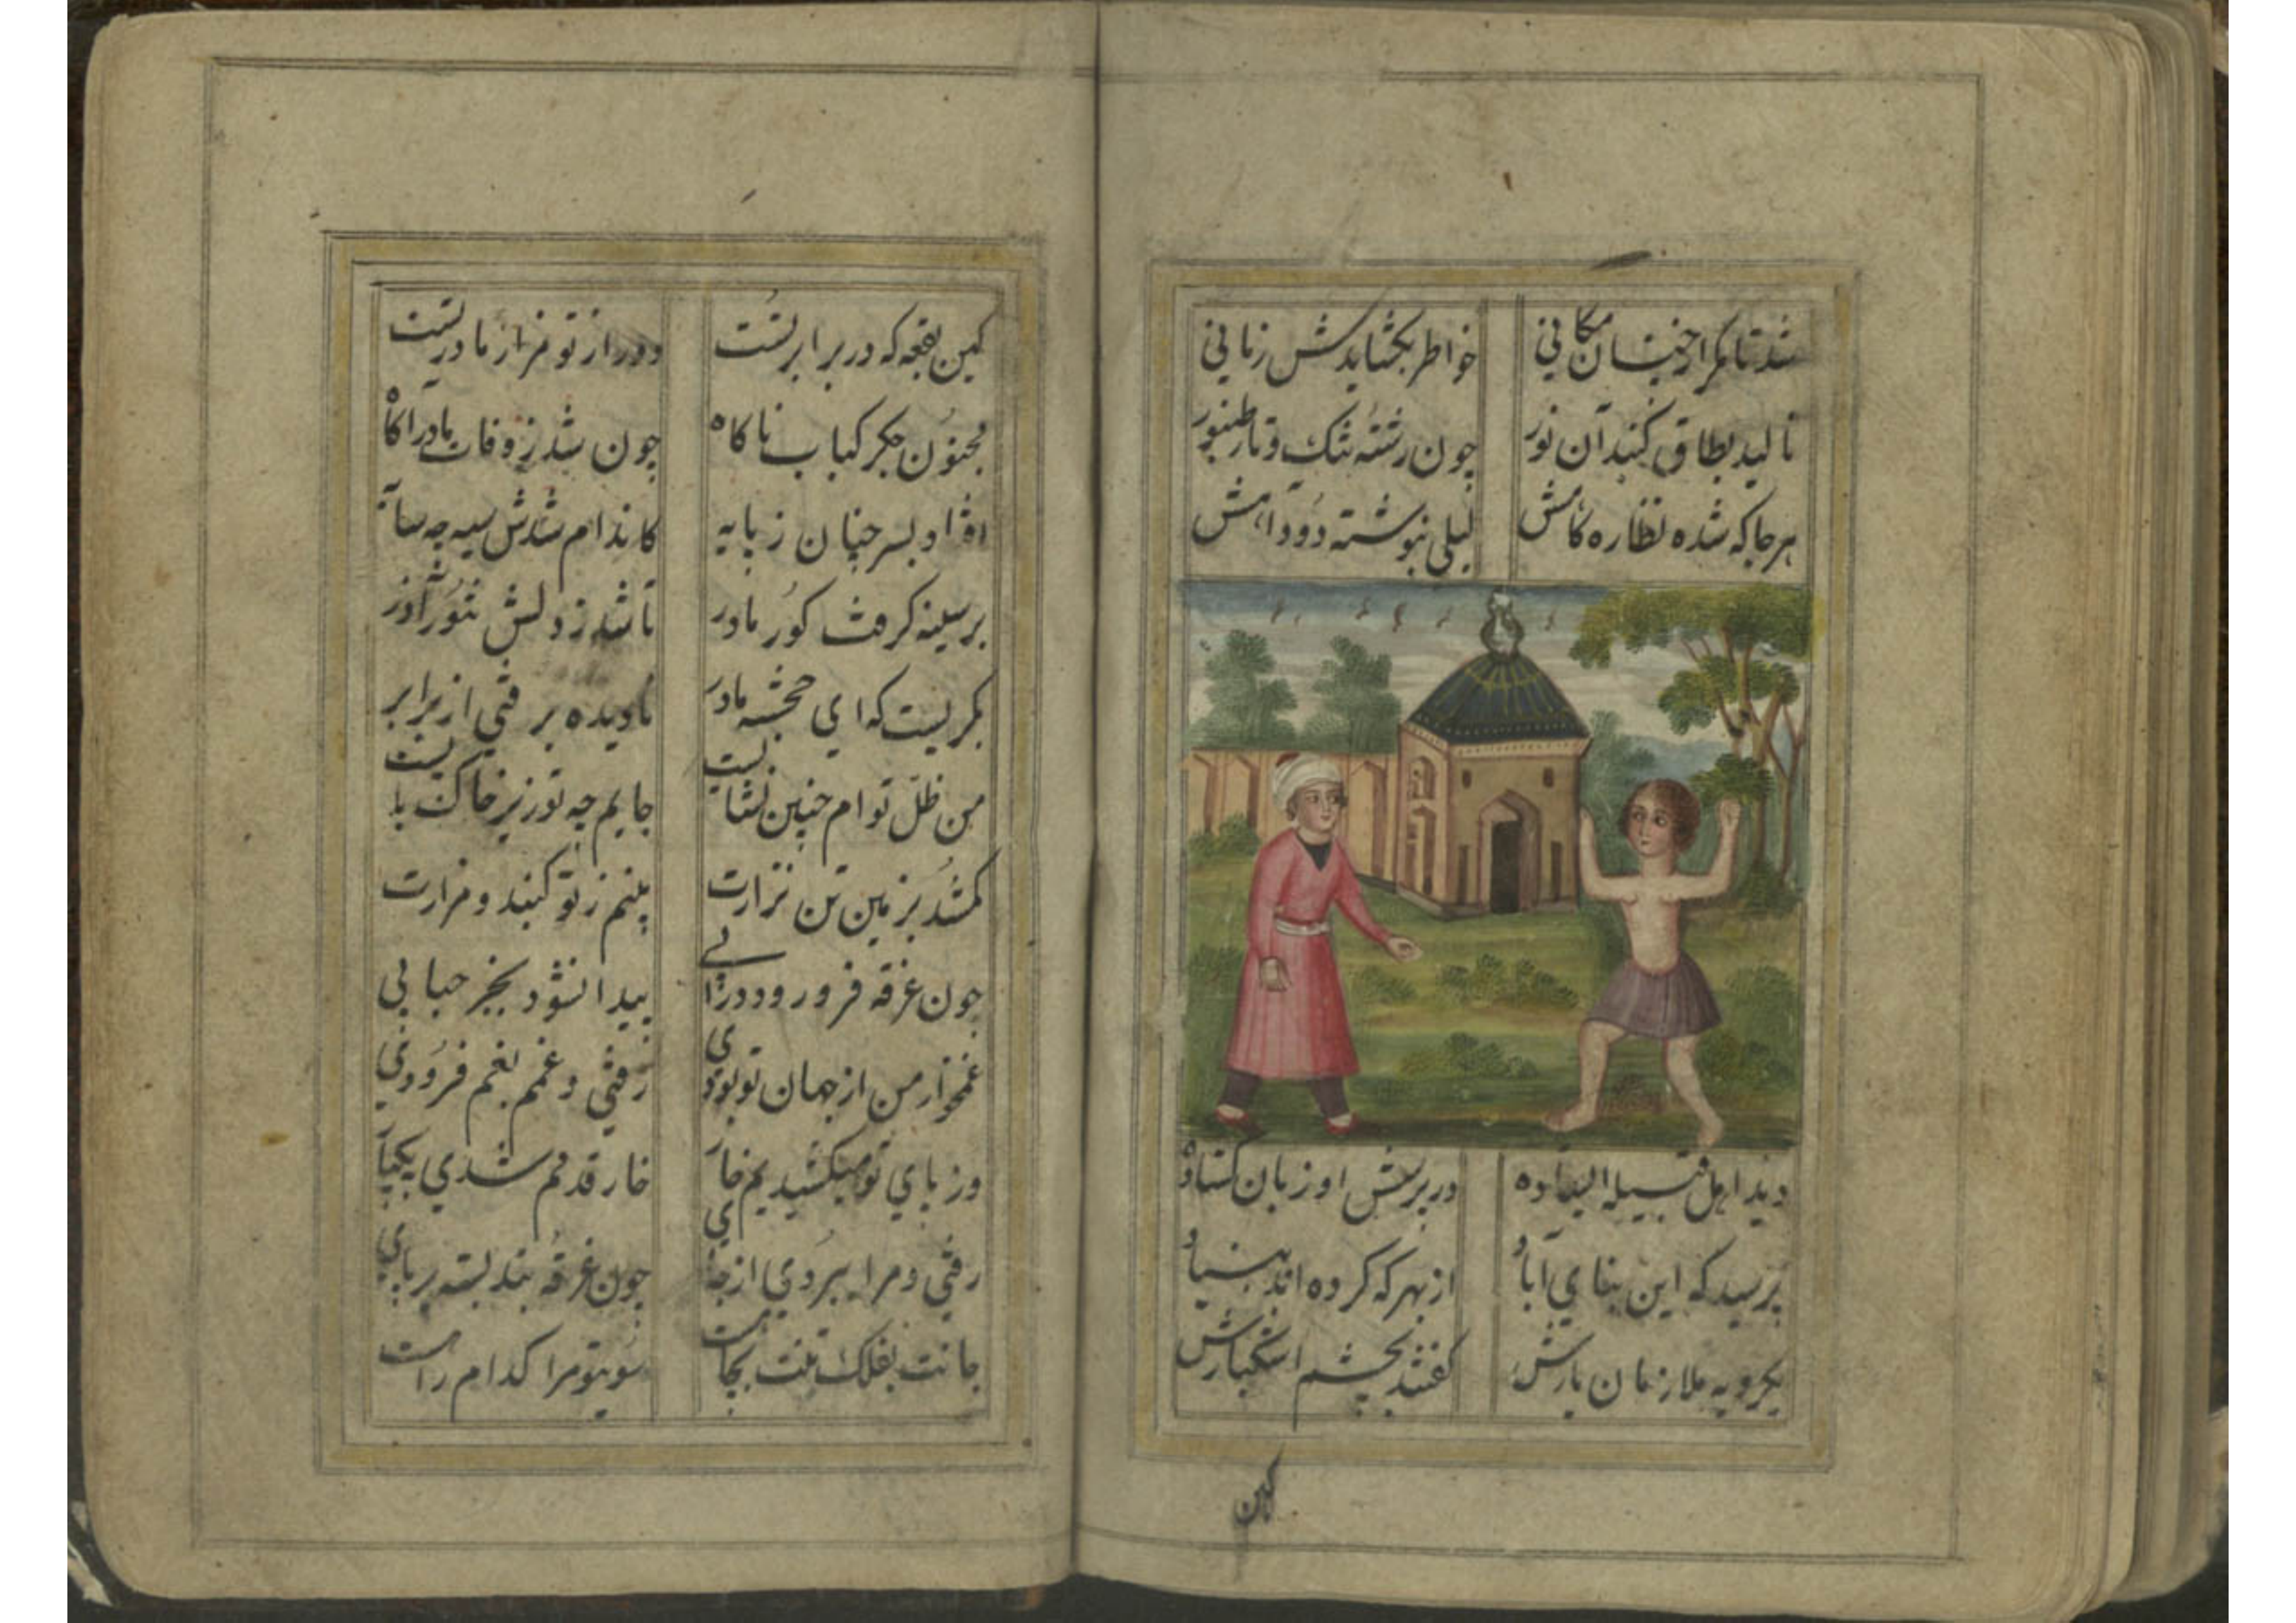 شد تا مگر از چنان مکانی خواطر بگشایدش زمانی
نالید بطاق گنبد آن نور چون رشته تنک و تار طنبور
هر جا که شده نظاره کاهش لیلی بنوشته دود آهش
دید اهل قبیله ایستاده در پرسش او زبان کشاده
پرسید که این بنای آباد از بهر که کرده اند بنیاد
یکرویه ملازمان یارش گفتند بچشم اشکبارش
کین
کین بقعه که در برابر تست دور از تو مزار مادر تست
مجنون جگر کباب ناکاه چون شد ز وفات مادر اکاه
افتاد بسر چنان ز پایه کاندام شدش سیه چه سایه
بر سینه گرفت گور مادر تا شد ز دلش تنور آذر
بگریست که ای خجسته مادر نادیده برفتی از برابر
من ظل توام چنین نشایست جایم چه تو زیر خاک بایست
کم شد بزمین تن نزارت بینم ز تو گنبد و مزارت
چون غرقه فرو رود در آبی پیدا نشود بجز حبابی
غمخوار من از جهان تو بودی رفتی و غمم بغم فزودی
وز پای تو میکشیدیم خار خار قدمم شدی بیکبار
رفتی و مرا ببردی از جای چون غرقه بند بسته بر پای
جانت بفلک تنت بجاهست سویتو مرا کدام راهست